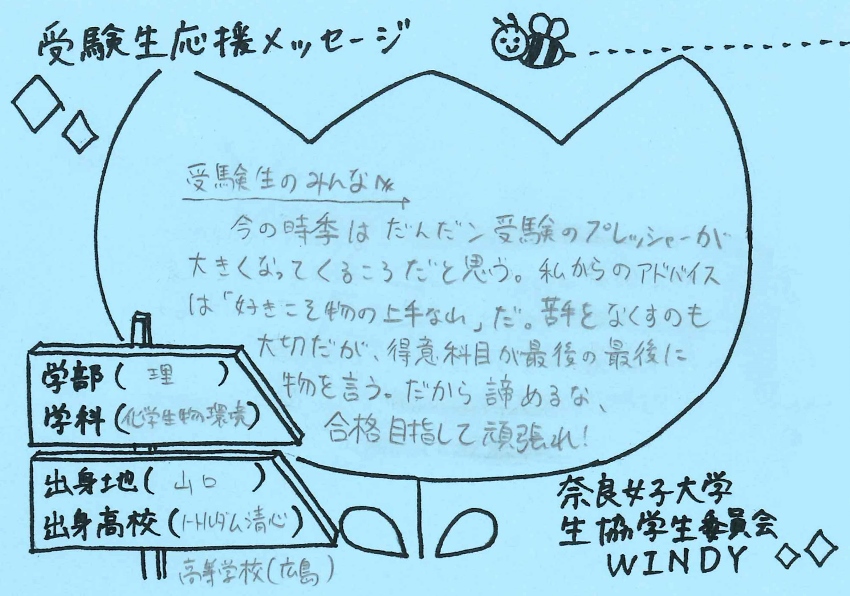 受験生応援メッセージ
受験生のみんなへ
今の時季はだんだン受験のプレッシャーが
大きくなってくるころだと思う。私からのアドバイス
は「好きこそ物の上手なれ」だ。苦手をなくすのも
大切だが、得意科目が最後の最後に
物を言う。だから諦めるな、
合格目指して頑張れ!
学部(理)
学科(化学生物環境)
出身地(山口)
出身高校(ノートルダム清心
高等学校(広島)
奈良女子大学
生協学生委員会
WINDY